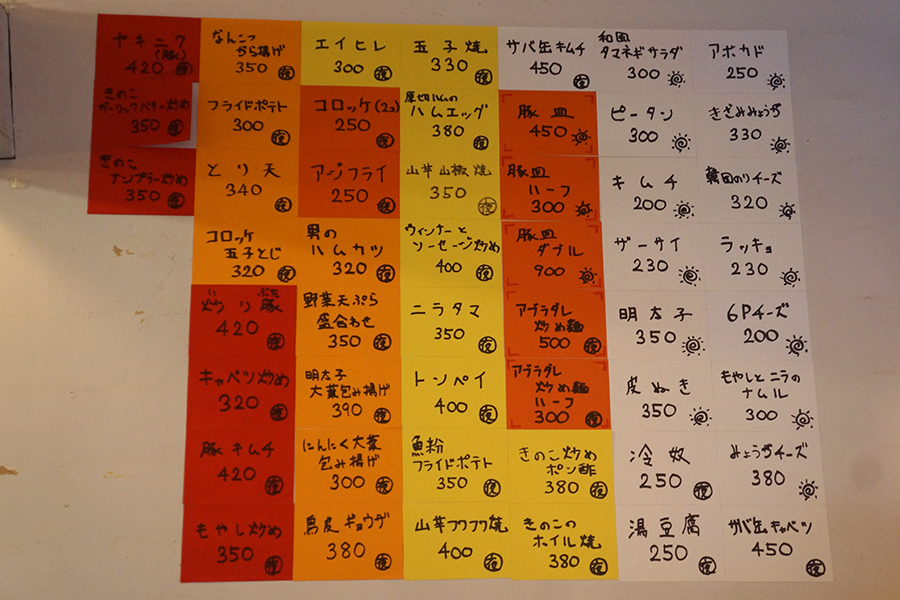 ヤキニク
(豚)
420 夜
きのこ
ガーリックバター炒め
350 夜
きのこ
ナンプラー炒め
350 夜
なんこつ
から揚げ
350 夜
フライドポテト
300 夜
とり天
340 夜
コロッケ
玉子とじ
320 夜
炒り豚
420 夜
キャベツ炒め
320 夜
豚キムチ
420 夜
もやし炒め
350 夜
エイヒレ
300 夜
コロッケ(2コ)
250 夜
アジフライ
250 夜
男の
ハムカツ
320 夜
野菜天ぷら
盛合わせ
350 夜
明太子
大葉包み揚げ
390 夜
にんにく大葉
包み揚げ
300 夜
鳥皮ギョウザ
380 夜
玉子焼
330 夜
厚切ハムの
ハムエッグ
380 夜
山芋山椒焼
350 夜
ウィンナーと
ソーセージ炒め
400 夜
ニラタマ
350 夜
トンペイ
400 夜
魚粉
フライドポテト
350 夜
山芋フワフワ焼
400 夜
サバ缶キムチ
450 夜
豚皿
450
豚皿
ハーフ
300
豚皿
ダブル
900
アブラダレ
炒め麺
500 夜
アブラダレ
炒め麺
ハーフ
300 夜
きのこ炒め
ポン酢
380 夜
きのこの
ホイル焼
380 夜
和風
タマネギサラダ
300
ピータン
300
キムチ
200
ザーサイ
230
明太子
350
皮ぬき
350
冷奴
250 夜
湯豆腐
250 夜
アボカド
250
きざみみょうが
330
韓国のりチーズ
320
ラッキョ
230
6Pチーズ
200
もやしとニラの
ナムル
300
みょうがチーズ
380
サバ缶キャベツ
450 夜